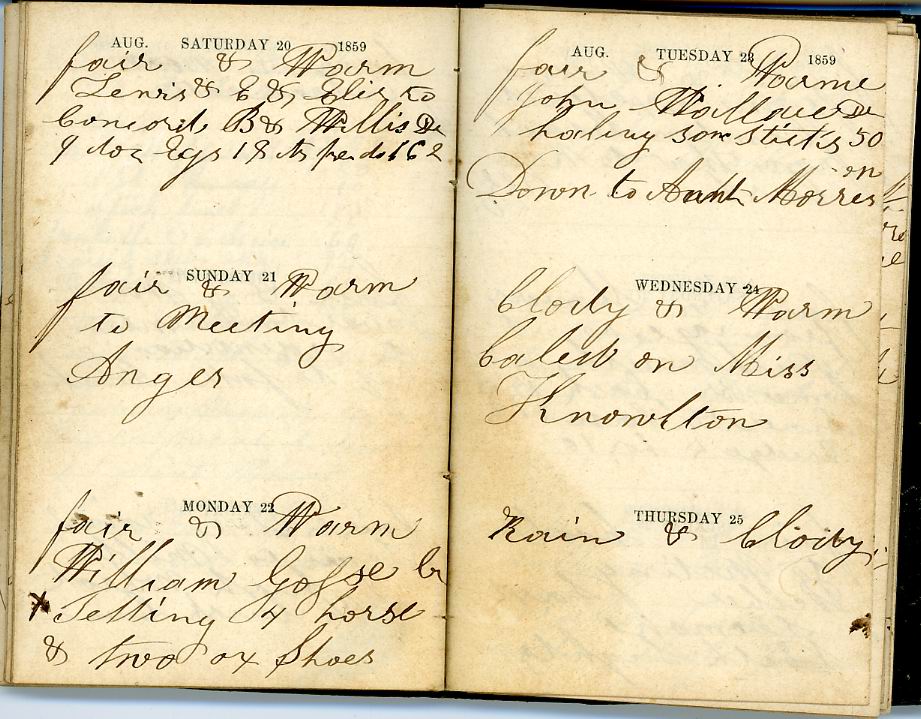 AUG. SATURDAY 20 1859
fair & Warm
Lewis & E & to
Concord B & Willis Dr
9 doz Egs 18 cts
SUNDAY 21
fair & Warm
to Meeting
Anger
MONDAY 22
fair & Warm
William Goffe Cr
Setting 4 horse
& two ox Shoes
AUG. TUESDAY 23 1859
fair & Warme
John Wallace Dr
haling som Sticks 50
on
Down to Aunt Morres
WEDNESDAY 24
Clody & Warm
Caled on Miss
Knowlton
THURSDAY 25
Rain & Clody